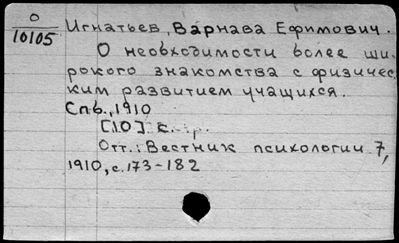 О
10105
Игнатьев, Варнава Ефимович.
О необходимости более ши-
рокого знакомства с физичес-
ким развитием учащихся.
Спб., 1910
[10] с.
Отт.: Вестник психологии 7,
1910, с. 173-182